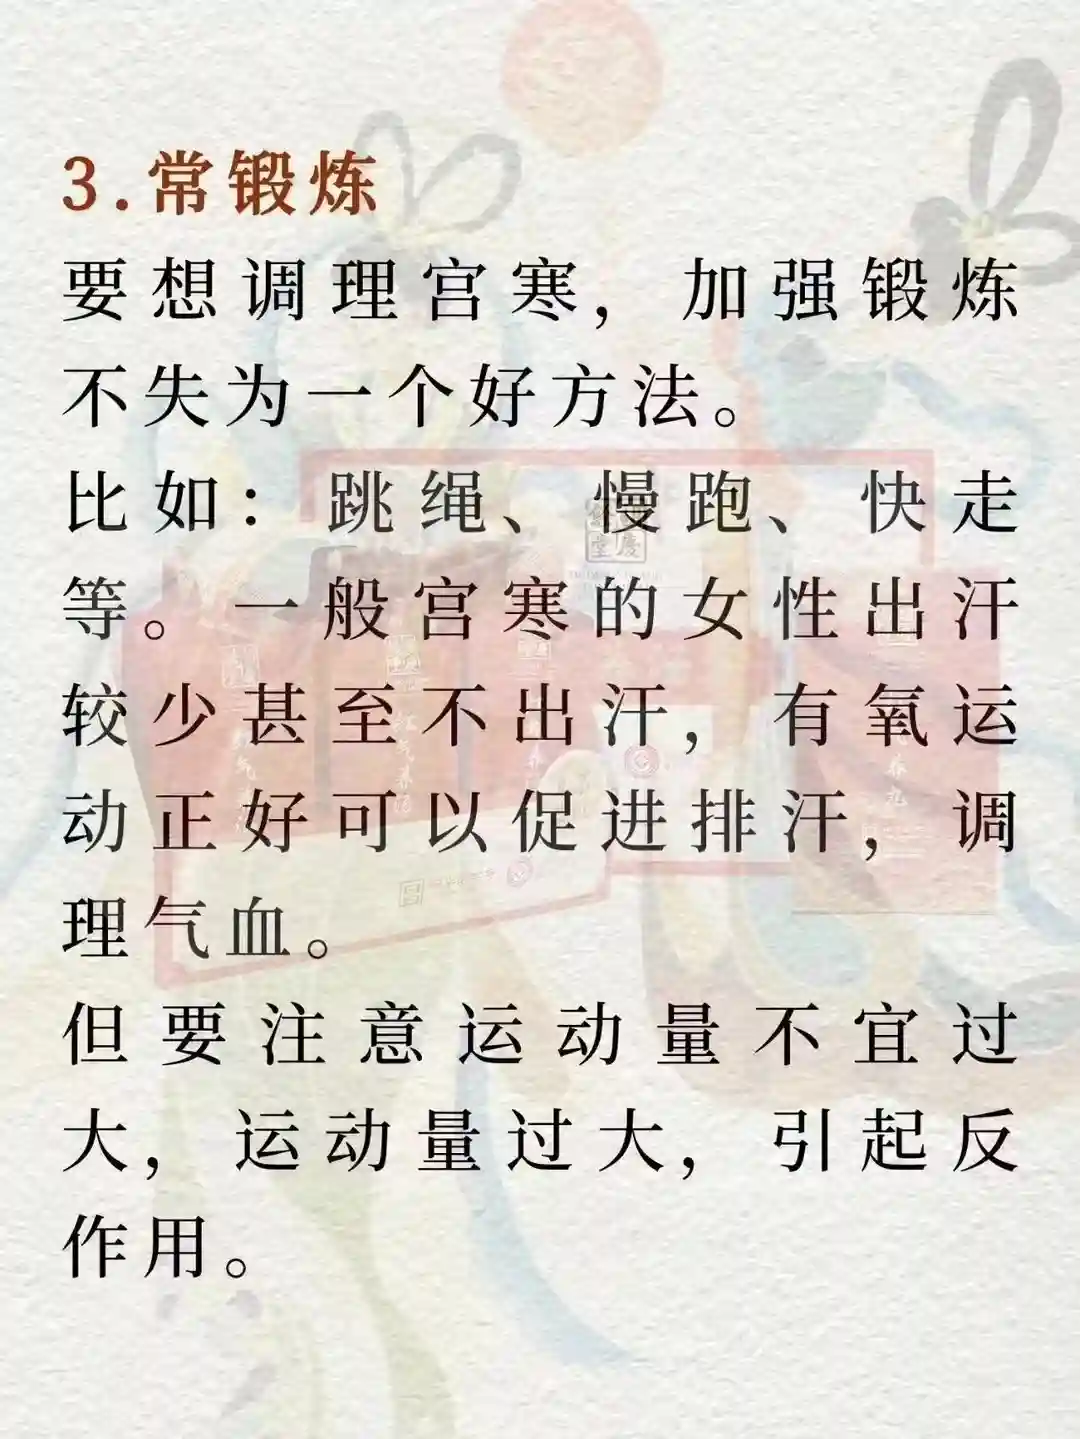 3.常锻炼
要想调理宫寒，加强锻炼
不失为一个好方法。
比如：跳绳、慢跑、快走
等。一般宫寒的女性出汗
较少甚至不出汗，有氧运
动正好可以促进排汗，调
理气血。
但要注意运动量不宜过
大，运动量过大，引起反
作用。